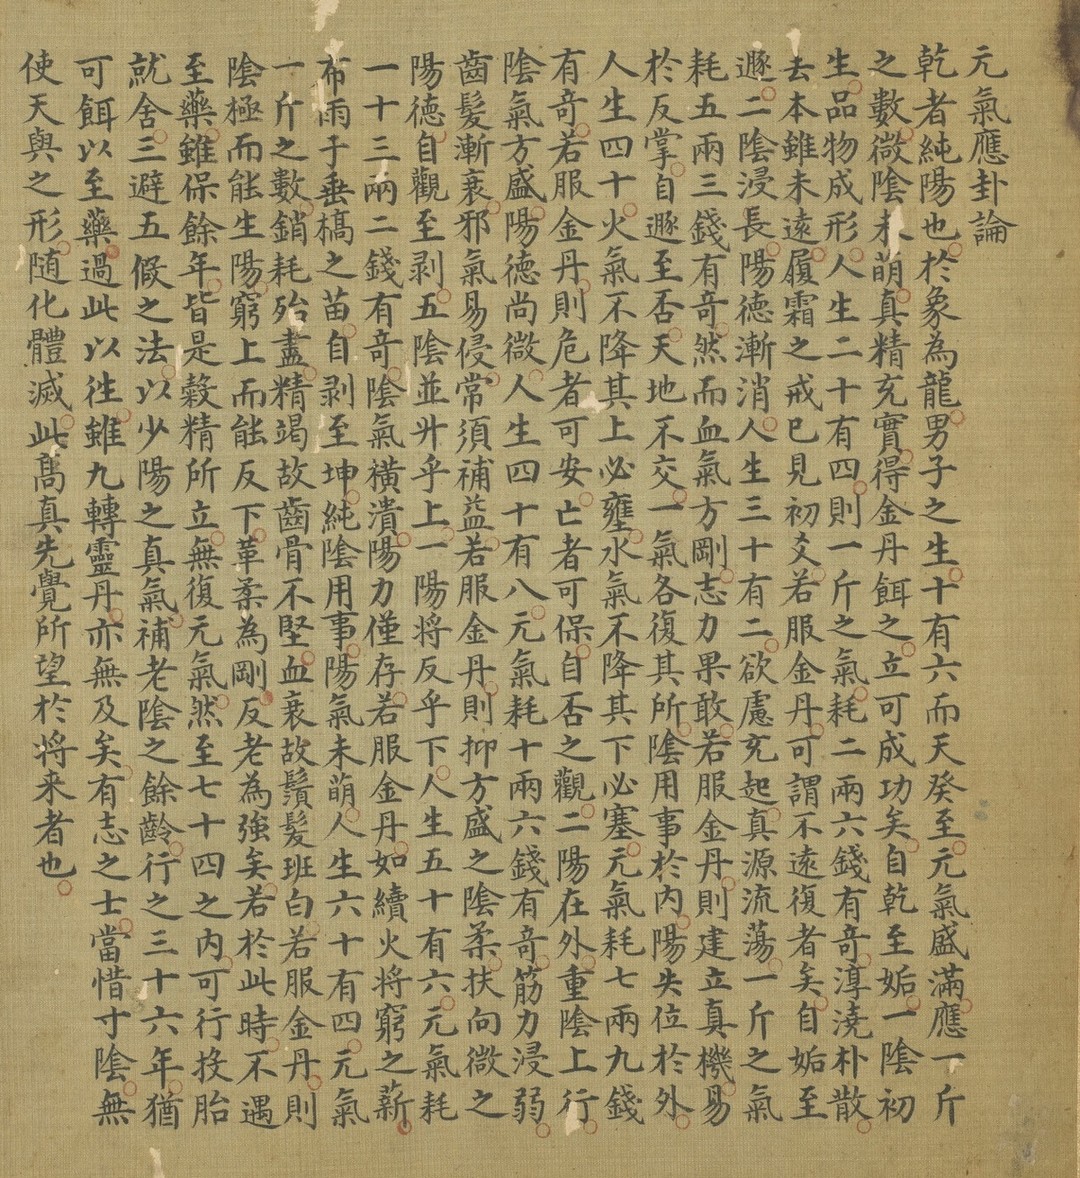 元氣應卦論
乾者純陽也於象為龍男子之生十有六而天癸至元氣盛滿應一斤
之數微陰未萌真精充實得金丹餌之立可成功矣自乾至姤一陰初
生品物成形人生二十有四則一斤之氣耗二兩六錢有奇淳澆朴散
去本雖未遠履霜之戒已見初爻若服金丹可謂不遠復者矣自姤至
遯二陰浸長陽德漸消人生三十有二欲慮充起真源流蕩一斤之氣
耗五兩三錢有奇然而血氣方剛志力果敢若服金丹則建立真機易
於反掌自遯至否天地不交一氣各復其所陰用事於內陽失位於外
人生四十火氣不降其上必壅水氣不降其下必塞元氣耗七兩九錢
有奇若服金丹則危者可安亡者可保自否之觀二陽在外重陰上行
陰氣方盛陽德尚微人生四十有八元氣耗十兩六錢有奇筋力浸弱
齒髮漸衰邪氣易侵常須補益若服金丹則抑方盛之陰柔扶向微之
陽德自觀至剥五陰並升乎上一陽将反乎下人生五十有六元氣耗
一十三兩二錢有奇陰氣橫潰陽力僅存若服金丹如續火将窮之薪
布雨于垂槁之苗自剥至坤純陰用事陽氣未萌人生六十有四元氣
一斤之數銷耗殆盡精竭故齒骨不堅血衰故鬚髮班白若服金丹則
陰極而能生陽窮上而能反下革柔為剛反老為強矣若於此時不遇
至藥雖保餘年皆是穀精所立無復元氣然至七十四之内可行投胎
就舍三避五假之法以少陽之真氣補老陰之餘齡行之三十六年猶
可餌以至藥過此以往雖九轉靈丹亦無及矣有志之士當惜寸陰無
使天與之形随化體滅此髙真先覺所望於将来者也